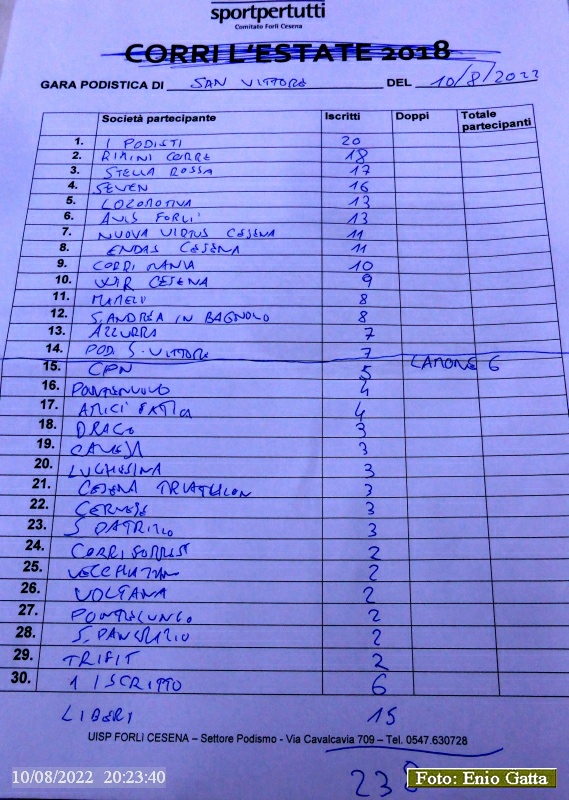 sportpertutti
Comitato Forlì Cesena
CORRI L'ESTATE 2018
GARA PODISTICA DI SAN VITTORE DEL 10/8/2022
Società partecipante Iscritti Doppi Totale partecipanti
1. I PODISTI 20
2. RIMINI CORRE 18
3. STELLA ROSSA 17
4. SEVEN 16
5. LOCOMOTIVA 13
6. AVIS FORLI' 13
7. NUOVA VIRTUS CESENA 11
8. ENDAS CESENA 11
9. CORRI MANIA 10
10. CESENA 9
11. MAMELI 8
12. S. ANDREA IN BAGNOLO 8
13. AZZURRA 7
14. POD. S. VITTORE 7
15. 5 LAMONE 6
16. 4
17. AMICI FATICA 4
18. DRAGO 3
19. 3
20. LUGHESINA 3
21. CESENA TRIATHLON 3
22. CERVESE 3
23. S PATRIZIO 3
24. CORRIFORREST 2
25. 2
26. VOLTANA 2
27. PONTELUNGO 2
28. S. PANCRAZIO 2
29. TRIFIT 2
30. 1 ISCRITTO 6
LIBERI 15
UISP FORLI CESENA – Settore Podismo - Via Cavalcavia 709 – Tel. 0547.630728
10/08/2022 20:23:40
Foto: Enio Gatta